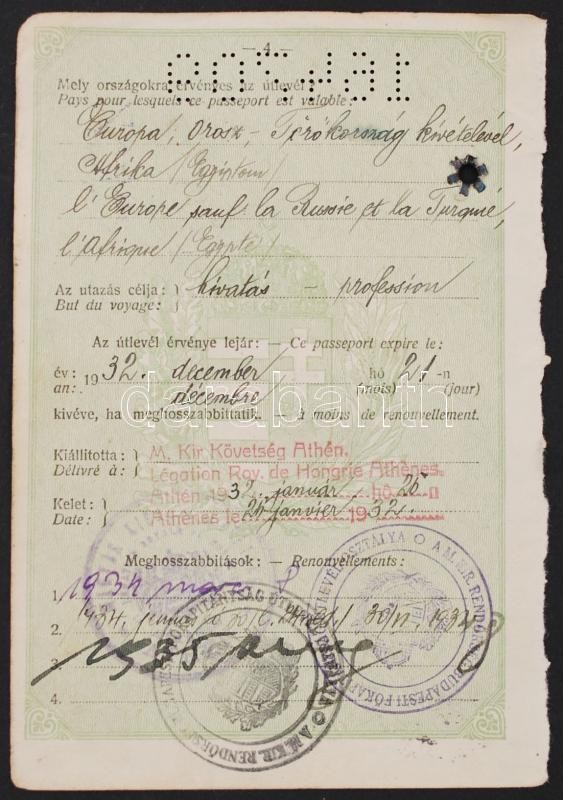 — 4 —
Mely országokra érvényes az útlevél:
Pays pour lesquels ce passeport est valable:
Európa, Orosz-, Törökország kivételével,
Afrika /Egyiptom/
l'Europe sauf la Russie et la Turquie,
l'Afrique /Egypte/
Az utazás célja: } hivatás — profession
But du voyage:
Az útlevél érvénye lejár: — Ce passeport expire le:
év: 1932. december hó 21-n
an: décembre (mois) (jour)
kivéve, ha meghosszabbíttatik. — à moins de renouvellement.
Kiállította: } M. Kir Követség Athén.
Délivré à: Légation Roy. de Hongrie Athènes.
Kelet: } Athén 1932. január hó 25 n
Date: Athènes le 25 janvier 1932.
Meghosszabbitások: — Renouvellements:
1. 1934
2. 1934. 1934
3. 1935
4.
BUDAPESTI FŐKAPITÁNYSÁG ÚTLEVÉLOSZTÁLYA
A M. KIR. RENDŐRSÉG
darabanth